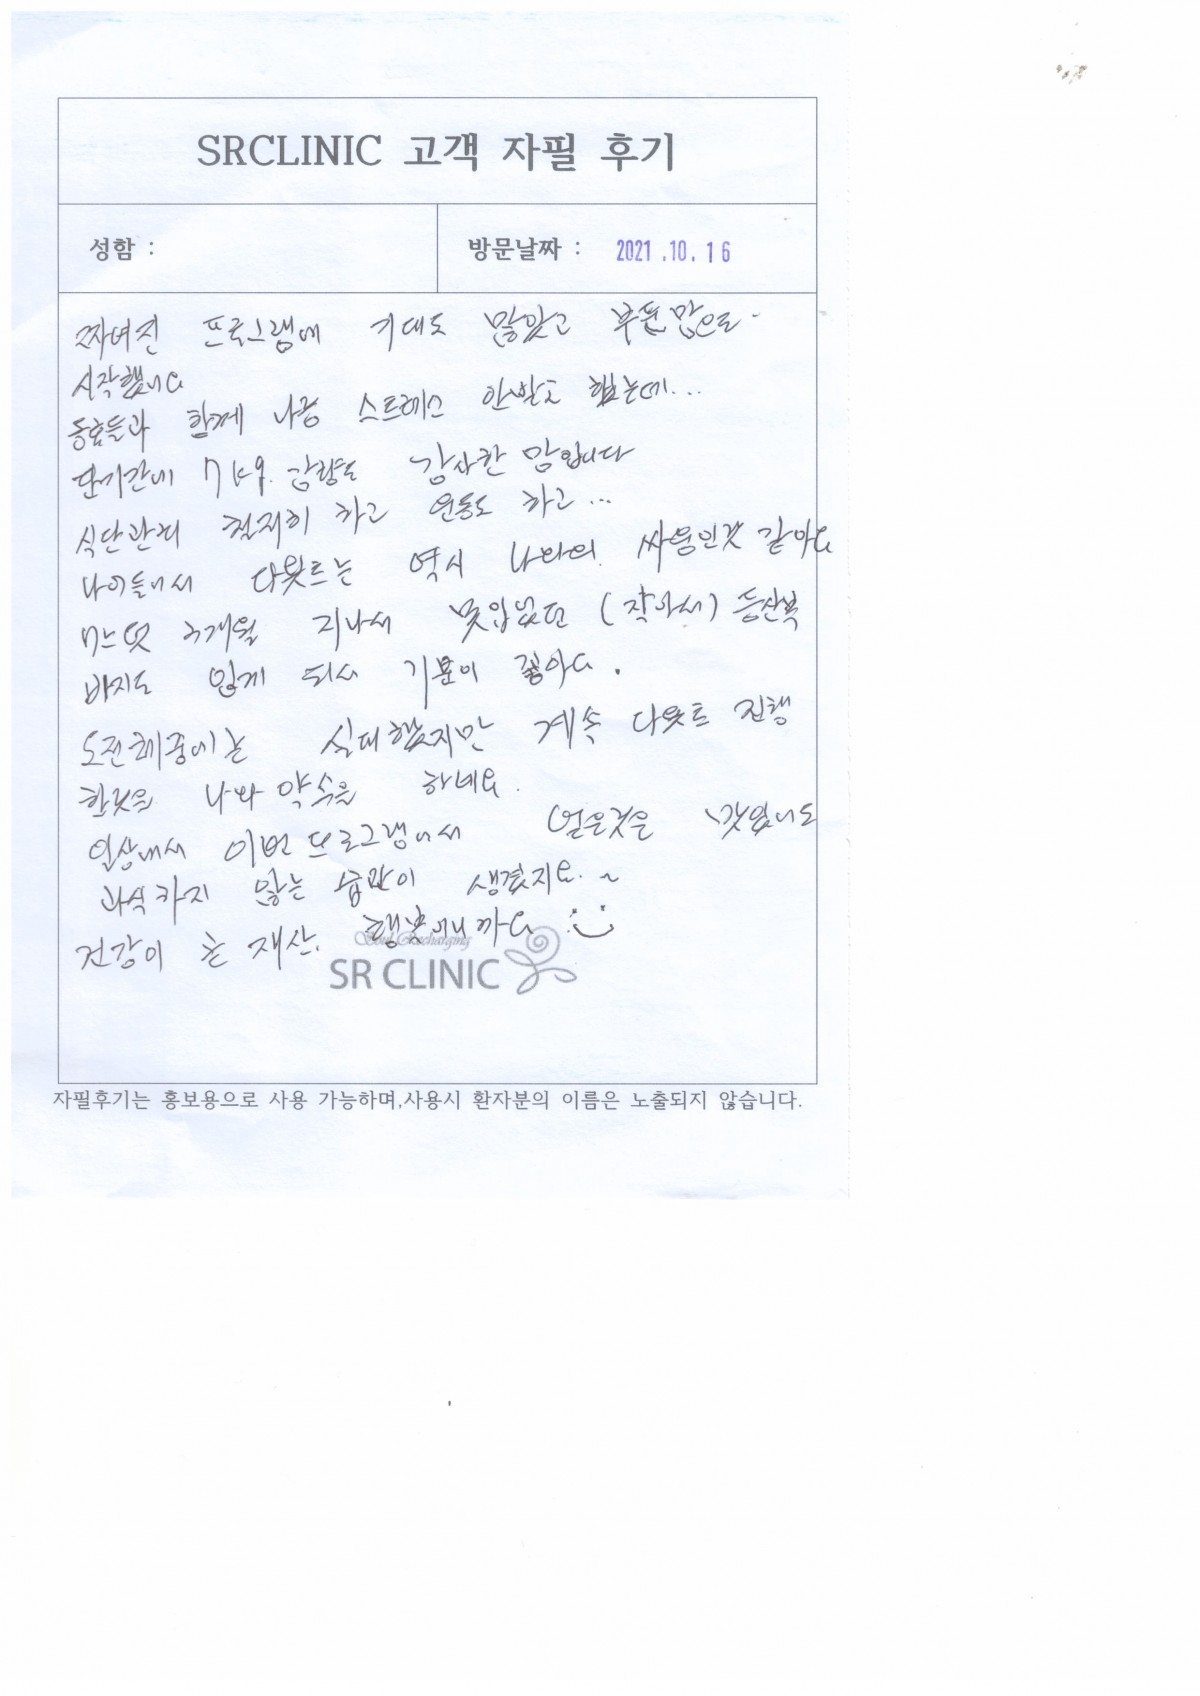 SRCLINIC 고객 자필 후기
성함 :
방문날짜 : 2021.10.16
짜여진 프로그램에 기대도 많았고 부푼맘으로
시작했어요
동료들과 함께 나름 스트레스 안받고 했는데...
단기간에 7kg. 감량도 감사한 맘입니다
식단관리 철저히 하고 운동도 하고...
나이들어서 다욧트는 역시 나와의 싸움인것 같아요
어느덧 3개월 지나서 못입었던 (작아서) 등산복
바지도 입게 되서 기분이 좋아요.
도전체중에는 실패했지만 계속 다욧트 진행
한것을 나와 약속을 하네요.
일상에서 이번 프로그램에서 얻은것은
과식하지 않는 습관이 생겼지요.~
건강이 큰 재산. 행복이니까요
Soul Recharging
SR CLINIC
자필후기는 홍보용으로 사용 가능하며,사용시 환자분의 이름은 노출되지 않습니다.